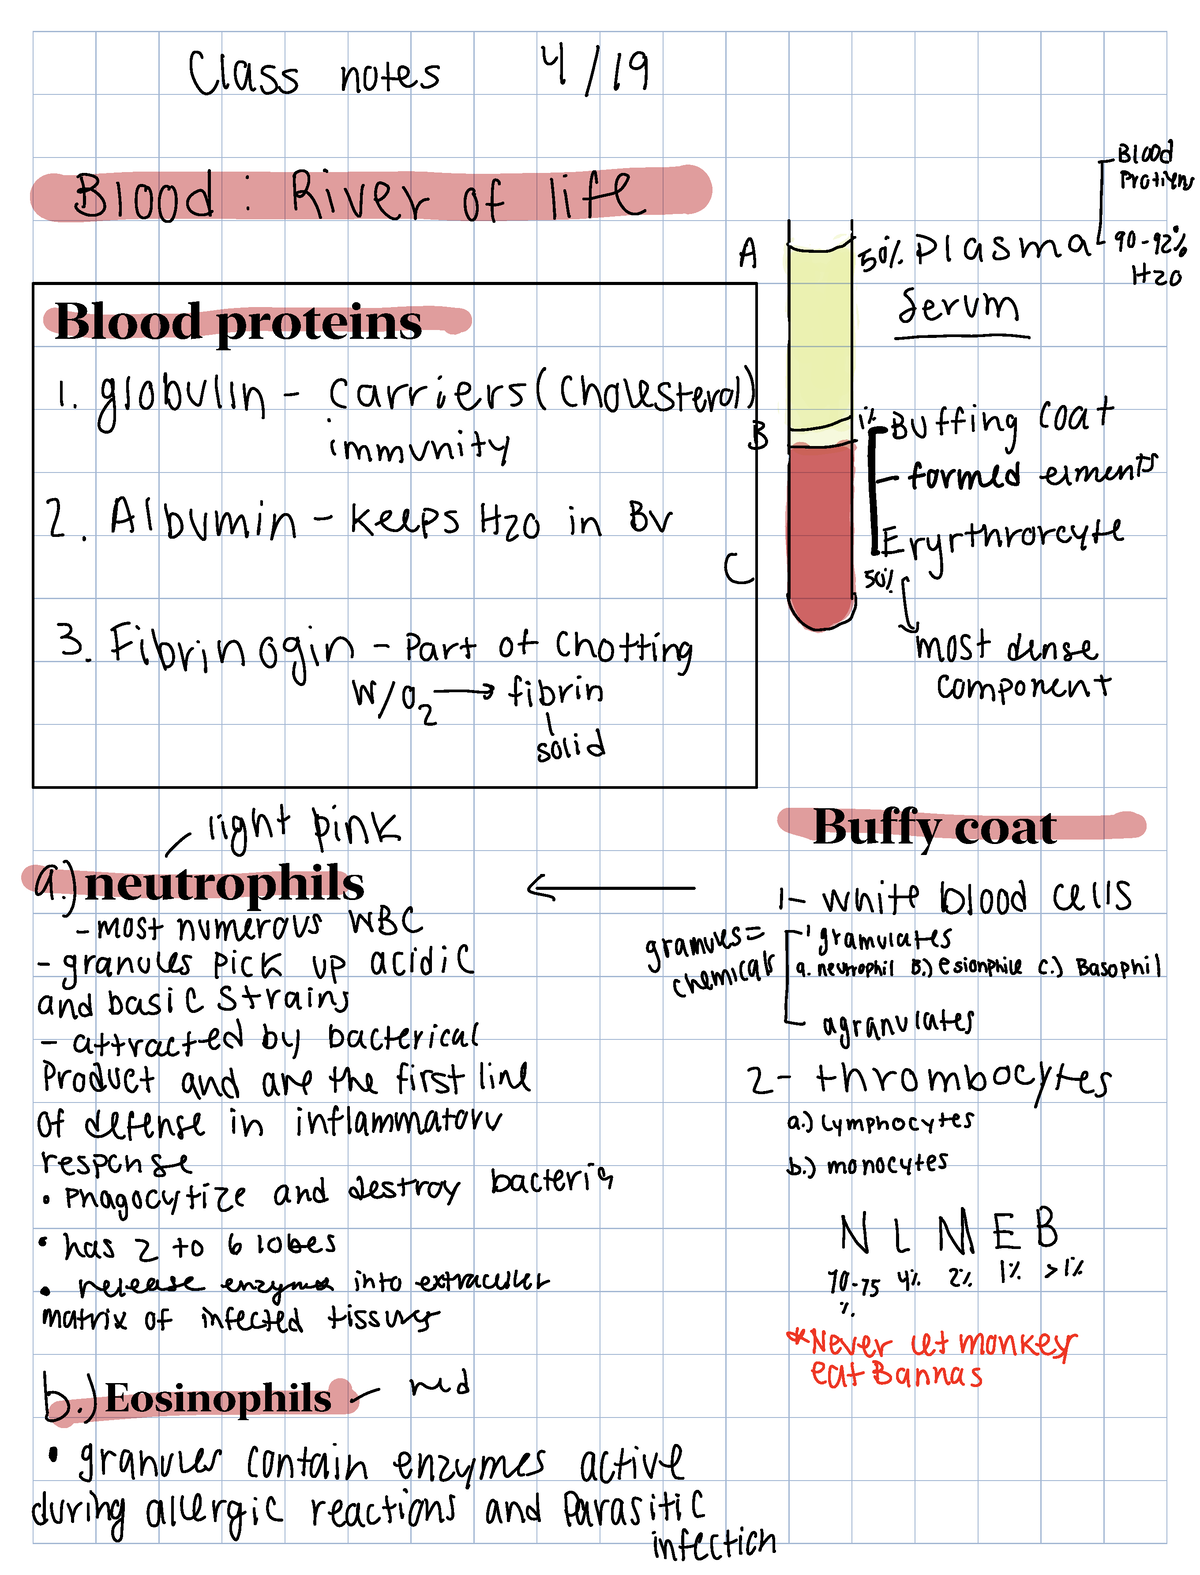 Class notes 4/19
Blood: River of life
Blood proteins
1. globulin - carriers (cholesterol)
immunity
2. Albumin - keeps H2O in BV
3. Fibrinogin - Part of Chotting
W/O2 → fibrin
solid
A
B
C
50% Plasma
Blood
Protiens
90-92%
H2O
Serum
1% Buffing coat
- formed elments
Eryrthrorcyte
50%
most dense
component
light pink
a.) neutrophils
- most numerous WBC
- granules pick up acidic
and basic strains
- attracted by bacterical
Product and are the first line
of defense in inflammatory
response
• Phagocytize and destroy bacteria
• has 2 to 6 lobes
• release enzymes into extraculer
matrix of infected tissues
b.) Eosinophils - red
• granules contain enzymes active
during allergic reactions and Parasitic
infection
Buffy coat
1- white blood cells
granules=
chemicals
granulates
a. neutrophil B.) esionphile C.) Basophil
agranulates
2- thrombocytes
a.) Lymphocytes
b.) monocytes
N L M E B
70-75% 4% 2% 1% >1%
*Never let monkey
eat Bannas